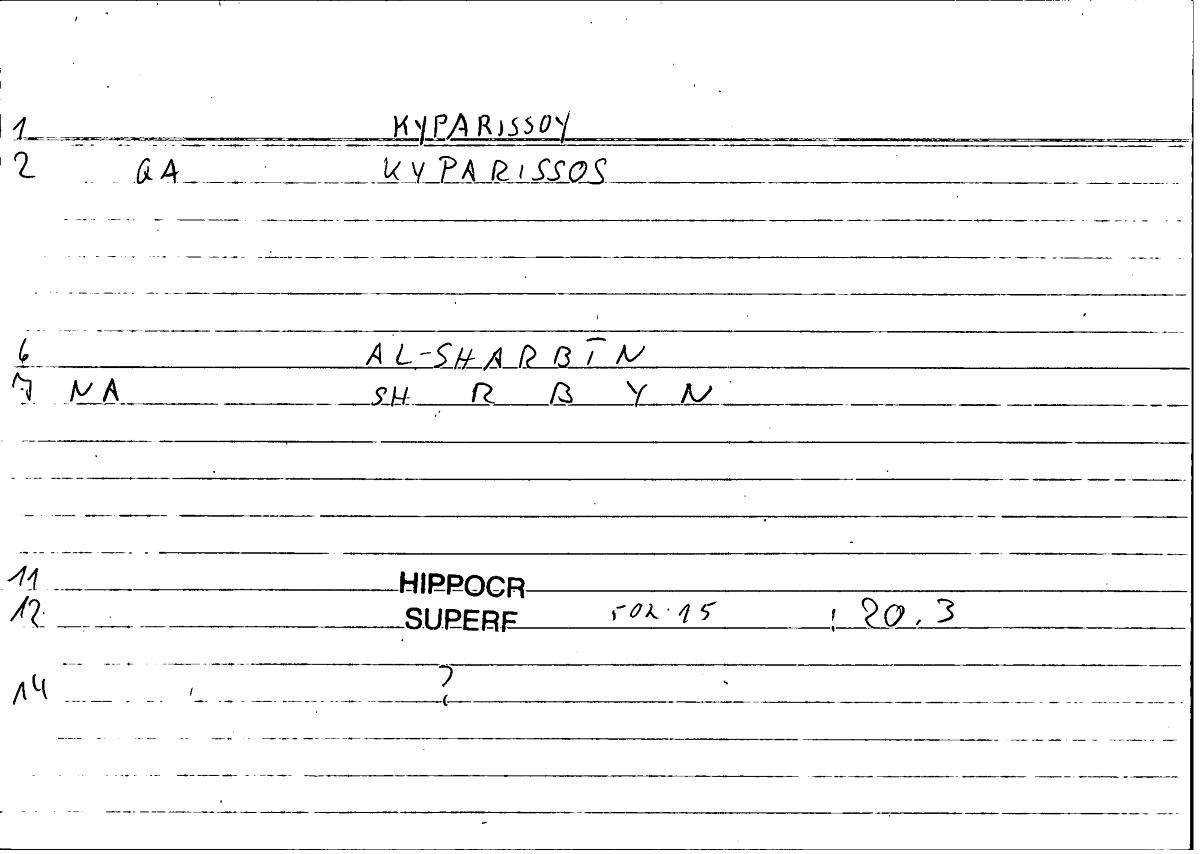 1 KYPARISSOY
2 GA KYPARISSOS
6 AL-SHARBĪN
7 NA SH R B Y N
11 HIPPOCR
12 SUPERF 502.15 : 20.3
14 ?